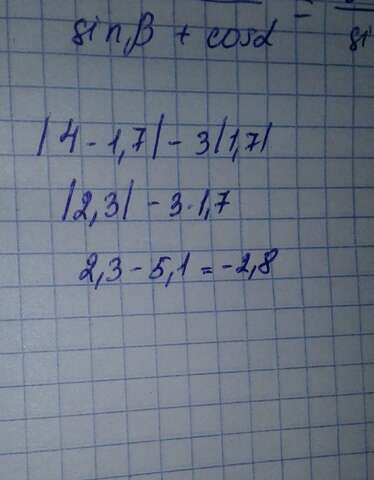 sin β + cos α =
si
|4 - 1,7| - 3|1,7|
|2,3| - 3·1,7
2,3 - 5,1 = -2,8